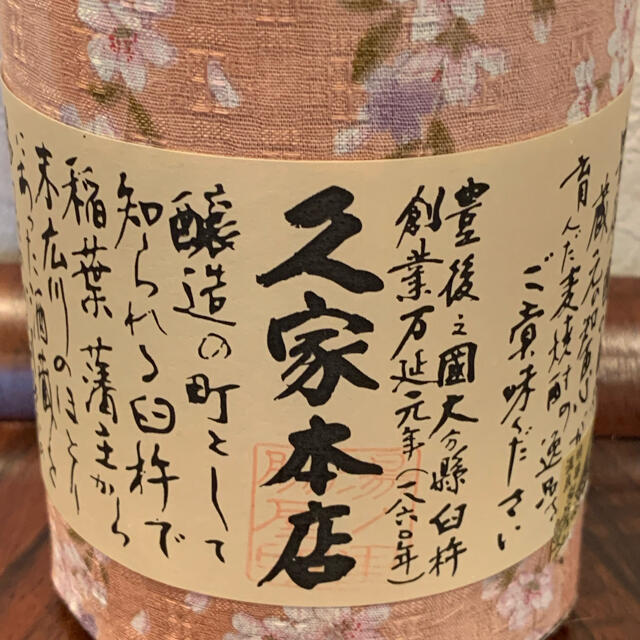 育んだ麦焼酎の逸品を
ご賞味ください
豊後之國大分縣臼杵
創業万延元年(一八六〇年)
久家本店
醸造の町として
知られる臼杵で
稲葉藩主から
末広川のほとり